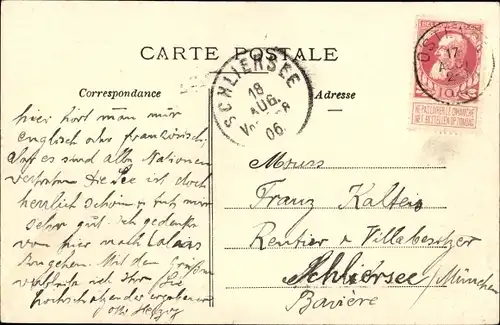 CARTE POSTALE
Correspondance
Adresse
SCHLIERSEE
18
AUG.
06
17
NE PAS LIVRER LE DIMANCHE
NIET BESTELLEN OP ZONDAG
hier hört man nur
englisch oder französisch
es sind alle Nationen
vertreten die See ist doch
herrlich schön & tut mir
sehr gut. ich gedenke
von hier nach Calais
zu gehen. Mit den Grüßen
ich Ihr Sie
hochschätzender ergebener
Otto Herzog
Franz Kalteis
Rentier & Villabesitzer
Schliersee / München
Bavière